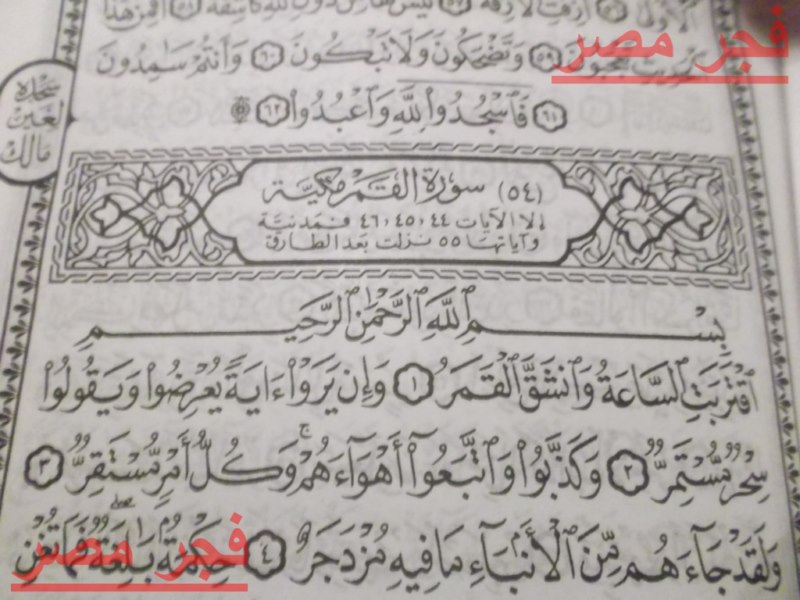 الأولى ۝٥٦ أزفت الآزفة ۝٥٧ ليس لها من دون الله كاشفة ۝٥٨ أفمن هذا
فجر مصر
تعجبون ۝٥٩ وَتَضْحَكُونَ وَلَا تَبْكُونَ ۝٦٠ وَأَنتُمْ سَٰمِدُونَ
۝٦١ فَٱسْجُدُوا۟ لِلَّهِ وَٱعْبُدُوا۟ ۝٦٢
سجدة
لغير
مالك
(٥٤) سورة القمر مكية
إلا الآيات ٤٤، ٤٥، ٤٦ فمدنية
وآياتها ٥٥ نزلت بعد الطارق
بِسْمِ ٱللَّهِ ٱلرَّحْمَٰنِ ٱلرَّحِيمِ
ٱقْتَرَبَتِ ٱلسَّاعَةُ وَٱنشَقَّ ٱلْقَمَرُ ۝١ وَإِن يَرَوْا۟ ءَايَةً يُعْرِضُوا۟ وَيَقُولُوا۟
سِحْرٌ مُّسْتَمِرٌّ ۝٢ وَكَذَّبُوا۟ وَٱتَّبَعُوٓا۟ أَهْوَآءَهُمْ ۚ وَكُلُّ أَمْرٍ مُّسْتَقِرٌّ ۝٣
وَلَقَدْ جَآءَهُم مِّنَ ٱلْأَنۢبَآءِ مَا فِيهِ مُزْدَجَرٌ ۝٤ حِكْمَةٌۢ بَٰلِغَةٌ ۖ فَمَا تُغْنِ
فجر مصر